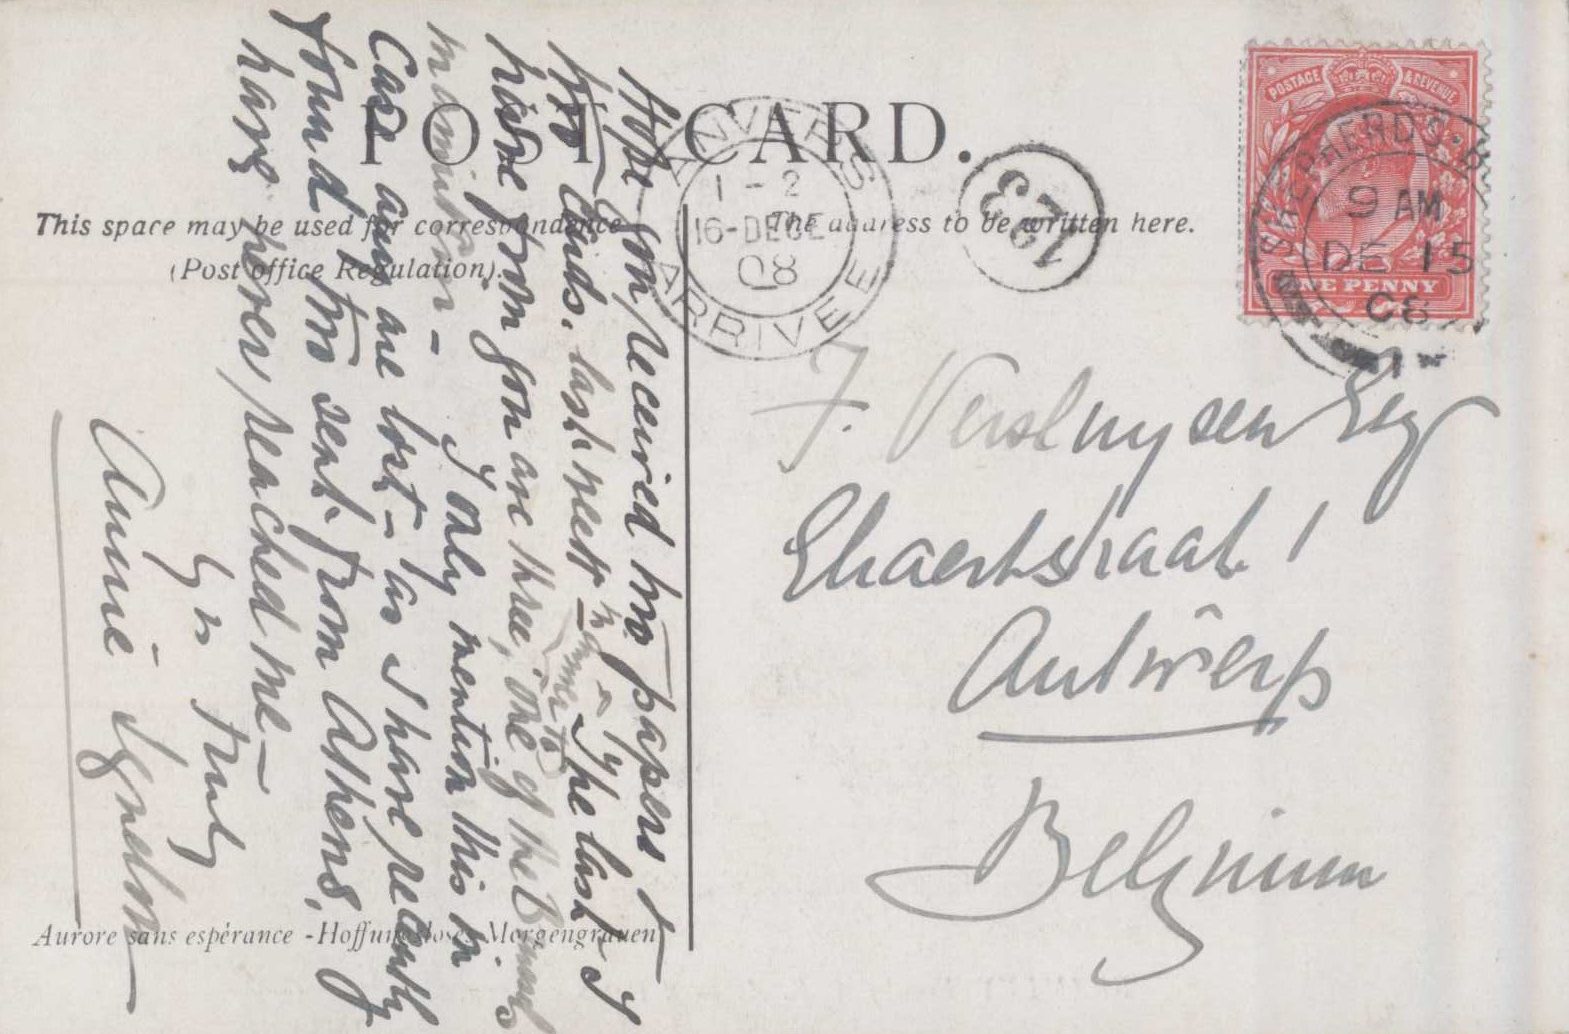 POST CARD.
This space may be used for correspondence
(Post office Regulation).
The address to be written here.
POSTAGE & REVENUE
ONE PENNY
SHEPHERDS.B
9 AM
DE 15
08
ANVERS
1-2
16-DECE
08
ARRIVEE
123
Hope you received two papers &
two cards. last week - The last I
have from you are three, one of the
mention - I only mention this in
Case any are lost - as I have recently
found two sent from Athens,
have never reached me -
Yrs truly
Annie
Esq
Antwerp
Belgium
Aurore sans espérance - Hoffnungsloses Morgengrauen